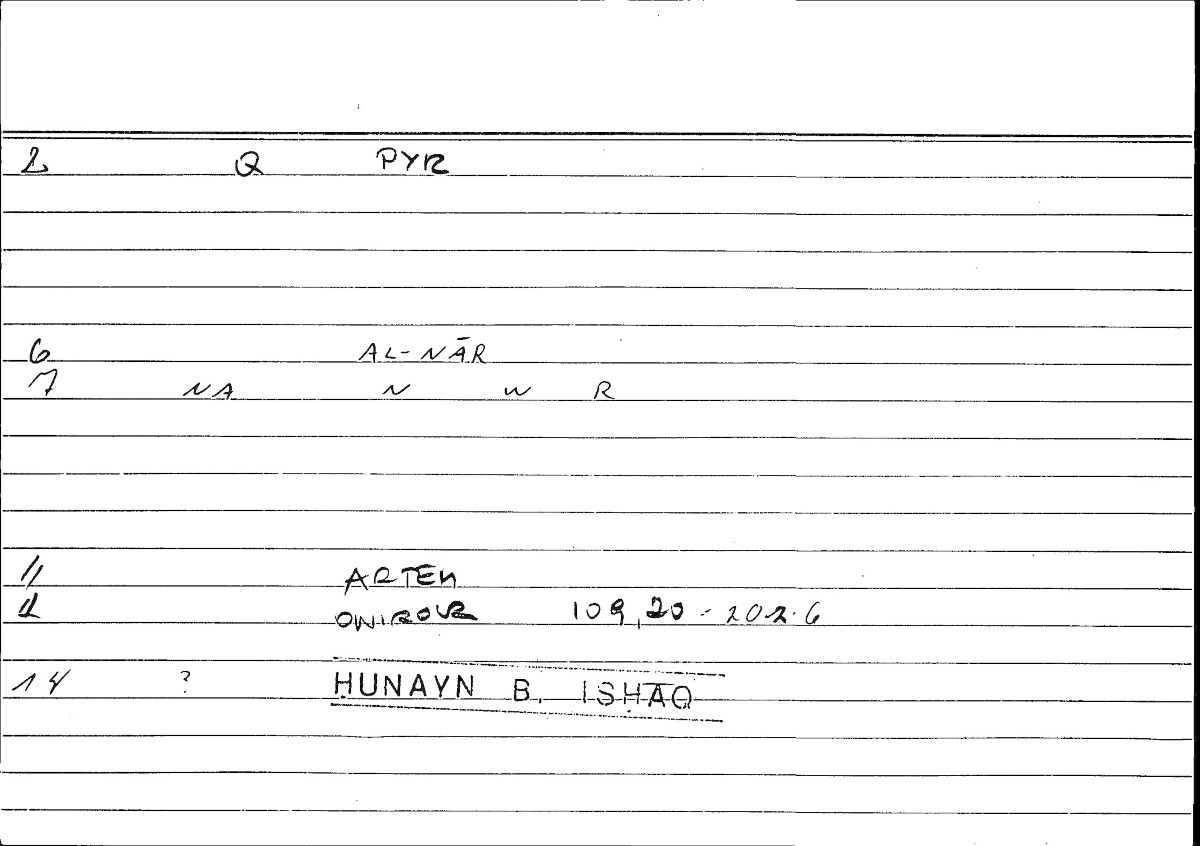 2 Q PYR
6 AL-NĀR
7 NA N W R
11 ARTEM
12 ONIROCR 109,20 - 202.6
14 ? ḤUNAYN B. ISḤĀQ